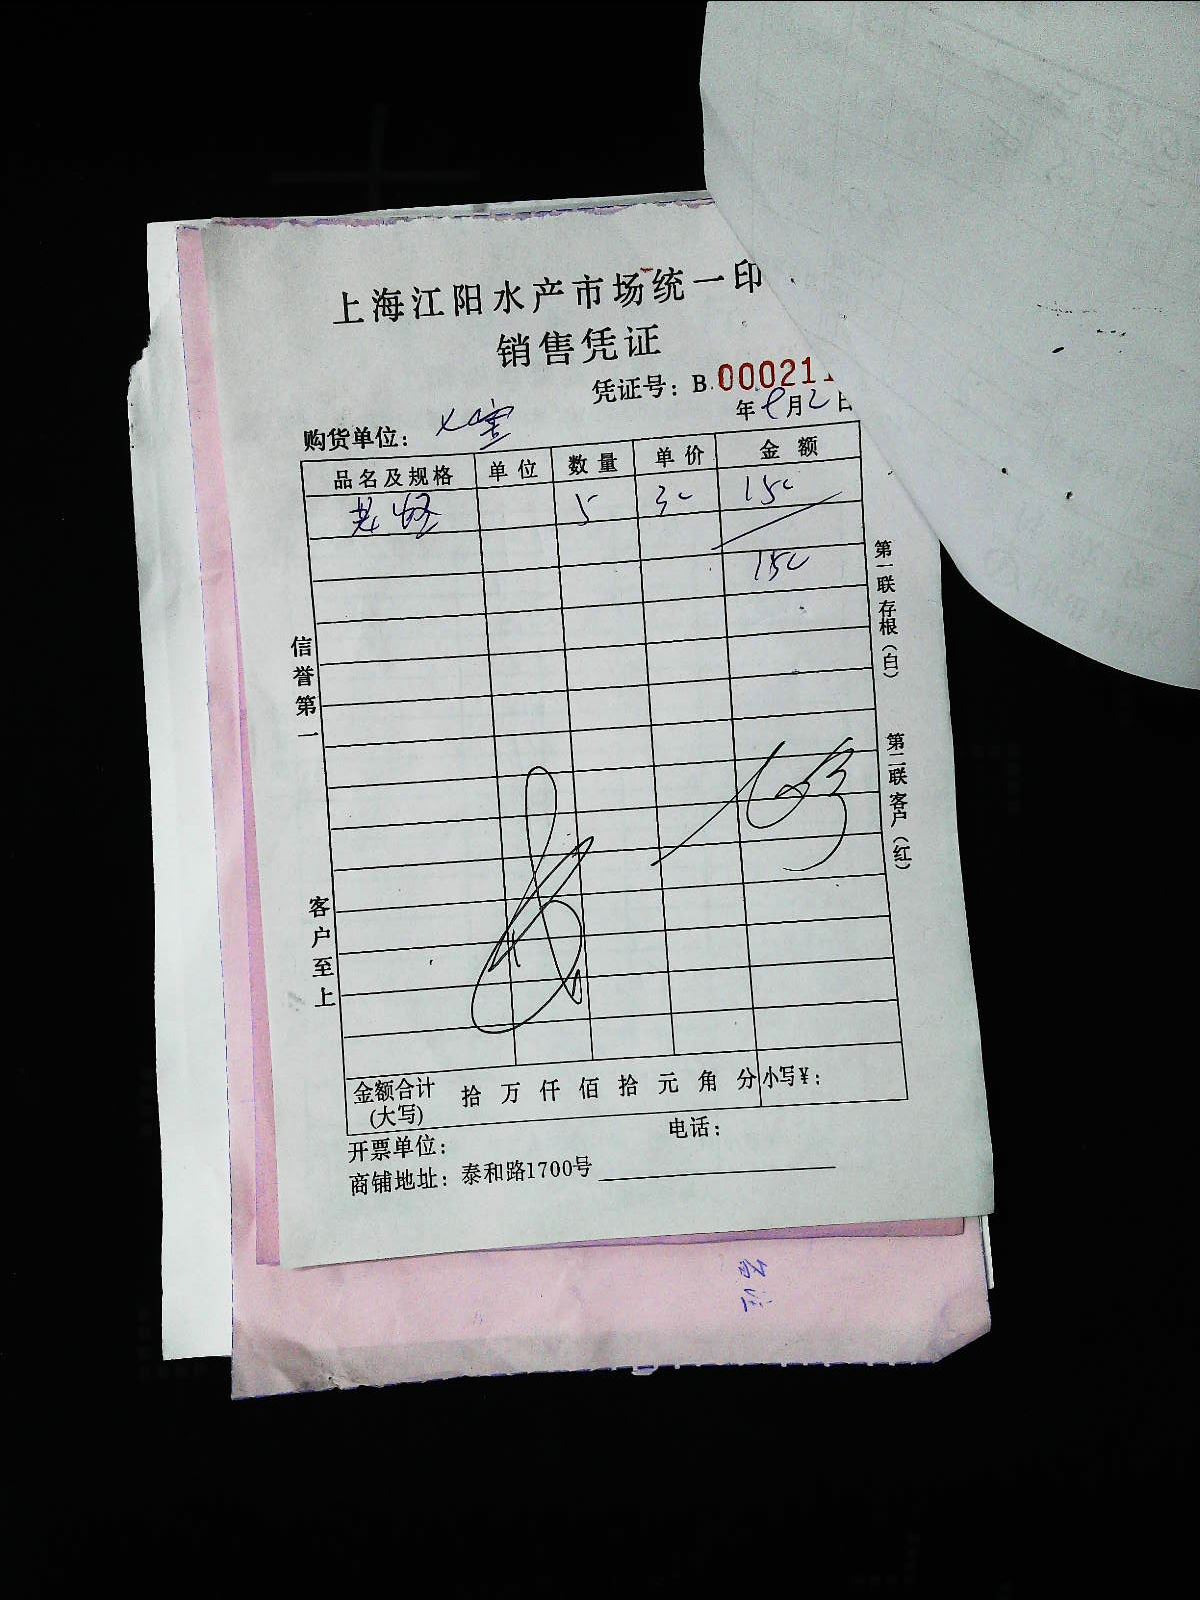 上海江阳水产市场统一印
销售凭证
凭证号：B.000211
年 月 2 日
购货单位：
品名及规格 单位 数量 单价 金额
5 30 150
150
信誉第一
客户至上
第一联存根（白）
第二联客户（红）
金额合计(大写) 拾 万 仟 佰 拾 元 角 分 小写¥：
开票单位： 电话：
商铺地址：泰和路1700号